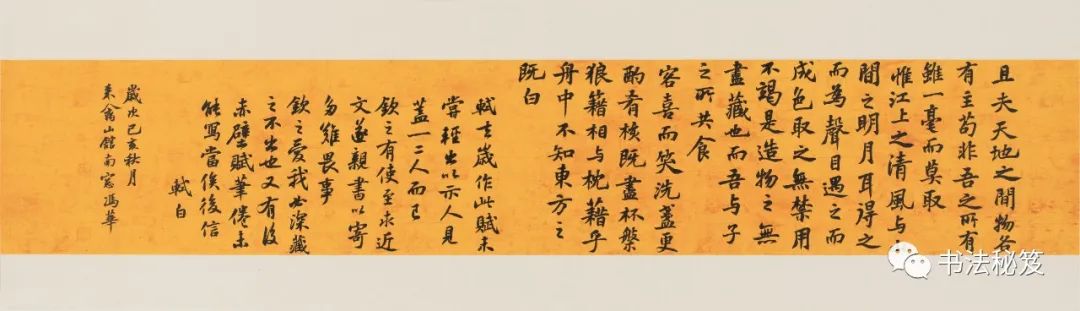 且夫天地之間物各
有主苟非吾之所有
雖一毫而莫取
惟江上之清風与
間之明月耳得之
而為聲目遇之而
成色取之無禁用
不竭是造物之無
盡藏也而吾与子
之所共食
容喜而笑洗盞更
酌肴核既盡杯槃
狼籍相与枕藉乎
舟中不知東方之
既白
軾去歲作此賦未
嘗輕出以示人見
蓋一二人而已
欽之有使至求近
文遂親書以寄
多難畏事
欽之愛我必深藏
之不出也又有後
赤壁賦筆倦未
能寫當俟後信
軾白
歲次己亥秋月
山館南窗馮華
书法秘笈